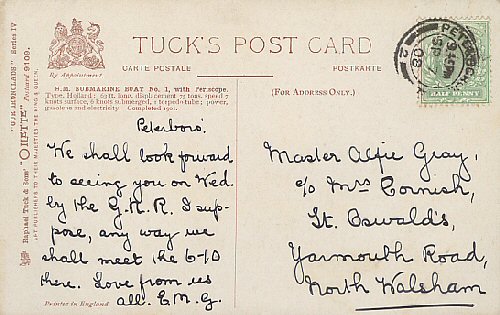 TUCK'S POST CARD
By Appointment
CARTE POSTALE
POSTKARTE
"OUR IRONCLADS" Series IV
"OILETTE" Postcard 9109.
Raphael Tuck & Sons'
ART PUBLISHERS TO THEIR MAJESTIES THE KING & QUEEN.
H.M. SUBMARINE BOAT No. 1, with Periscope.
Type, Holland: 63ft. long, displacement 75 tons, speed 7
knots surface, 6 knots submerged, 1 torpedo tube; power,
gasolene and electricity. Completed 1901.
Peterboro'.
We shall look forward
to seeing you on Wed.
by the G.N.R. I sup-
pose, any way we
shall meet the 6-10
there. Love from us
all. E.M.G.
Printed in England
(FOR ADDRESS ONLY.)
Master Alfie Gray,
c/o Mrs Cornish,
St. Oswald's,
Yarmouth Road,
North Walsham
HALF PENNY
08